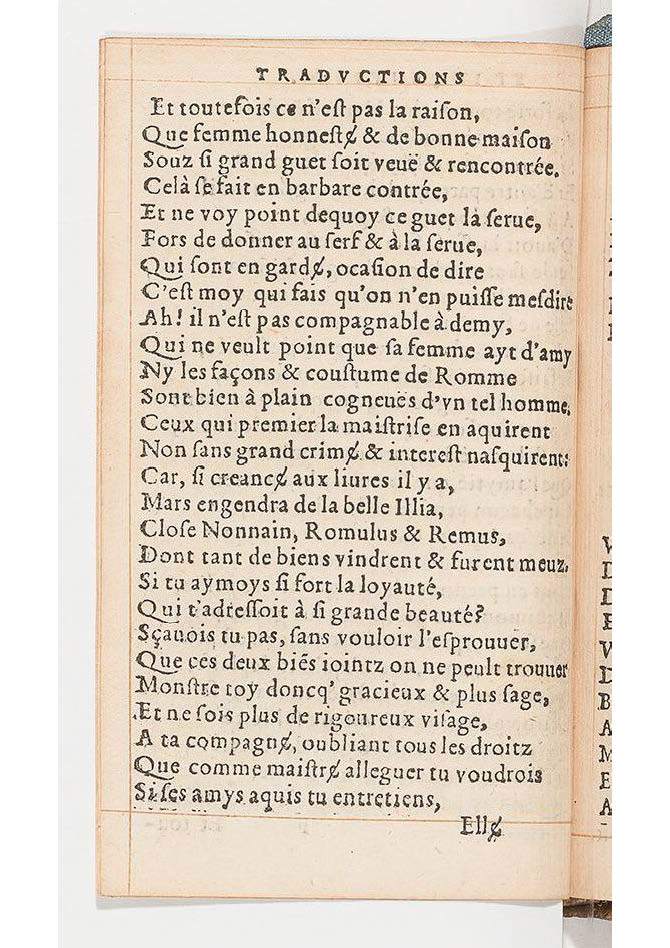 TRADVCTIONS
Et toutefois ce n'eſt pas la raiſon,
Que femme honneſtɇ & de bonne maiſon
Souz ſi grand guet ſoit veuë & rencontrée.
Celà ſe fait en barbare contrée,
Et ne voy point dequoy ce guet là ſerue,
Fors de donner au ſerf & à la ſerue,
Qui ſont en gardɇ, ocaſion de dire
C'eſt moy qui fais qu'on n'en puiſſe meſdire
Ah! il n'eſt pas compagnable à demy,
Qui ne veult point que ſa femme ayt d'amy
Ny les façons & couſtume de Romme
Sont bien à plain cogneuës d'vn tel homme,
Ceux qui premier la maiſtriſe en aquirent
Non ſans grand crimɇ & intereſt naſquirent:
Car, ſi creancɇ aux liures il y a,
Mars engendra de la belle Illia,
Cloſe Nonnain, Romulus & Remus,
Dont tant de biens vindrent & furent meuz.
Si tu aymoys ſi fort la loyauté,
Qui t'adreſſoit à ſi grande beauté?
Sçauois tu pas, ſans vouloir l'eſprouuer,
Que ces deux biés iointz on ne peult trouuer
Monſtre toy doncq' gracieux & plus ſage,
Et ne ſois plus de rigoureux viſage,
A ta compagnɇ, oubliant tous les droitz
Que comme maiſtrɇ alleguer tu voudrois
Si ſes amys aquis tu entretiens,
Ellɇ